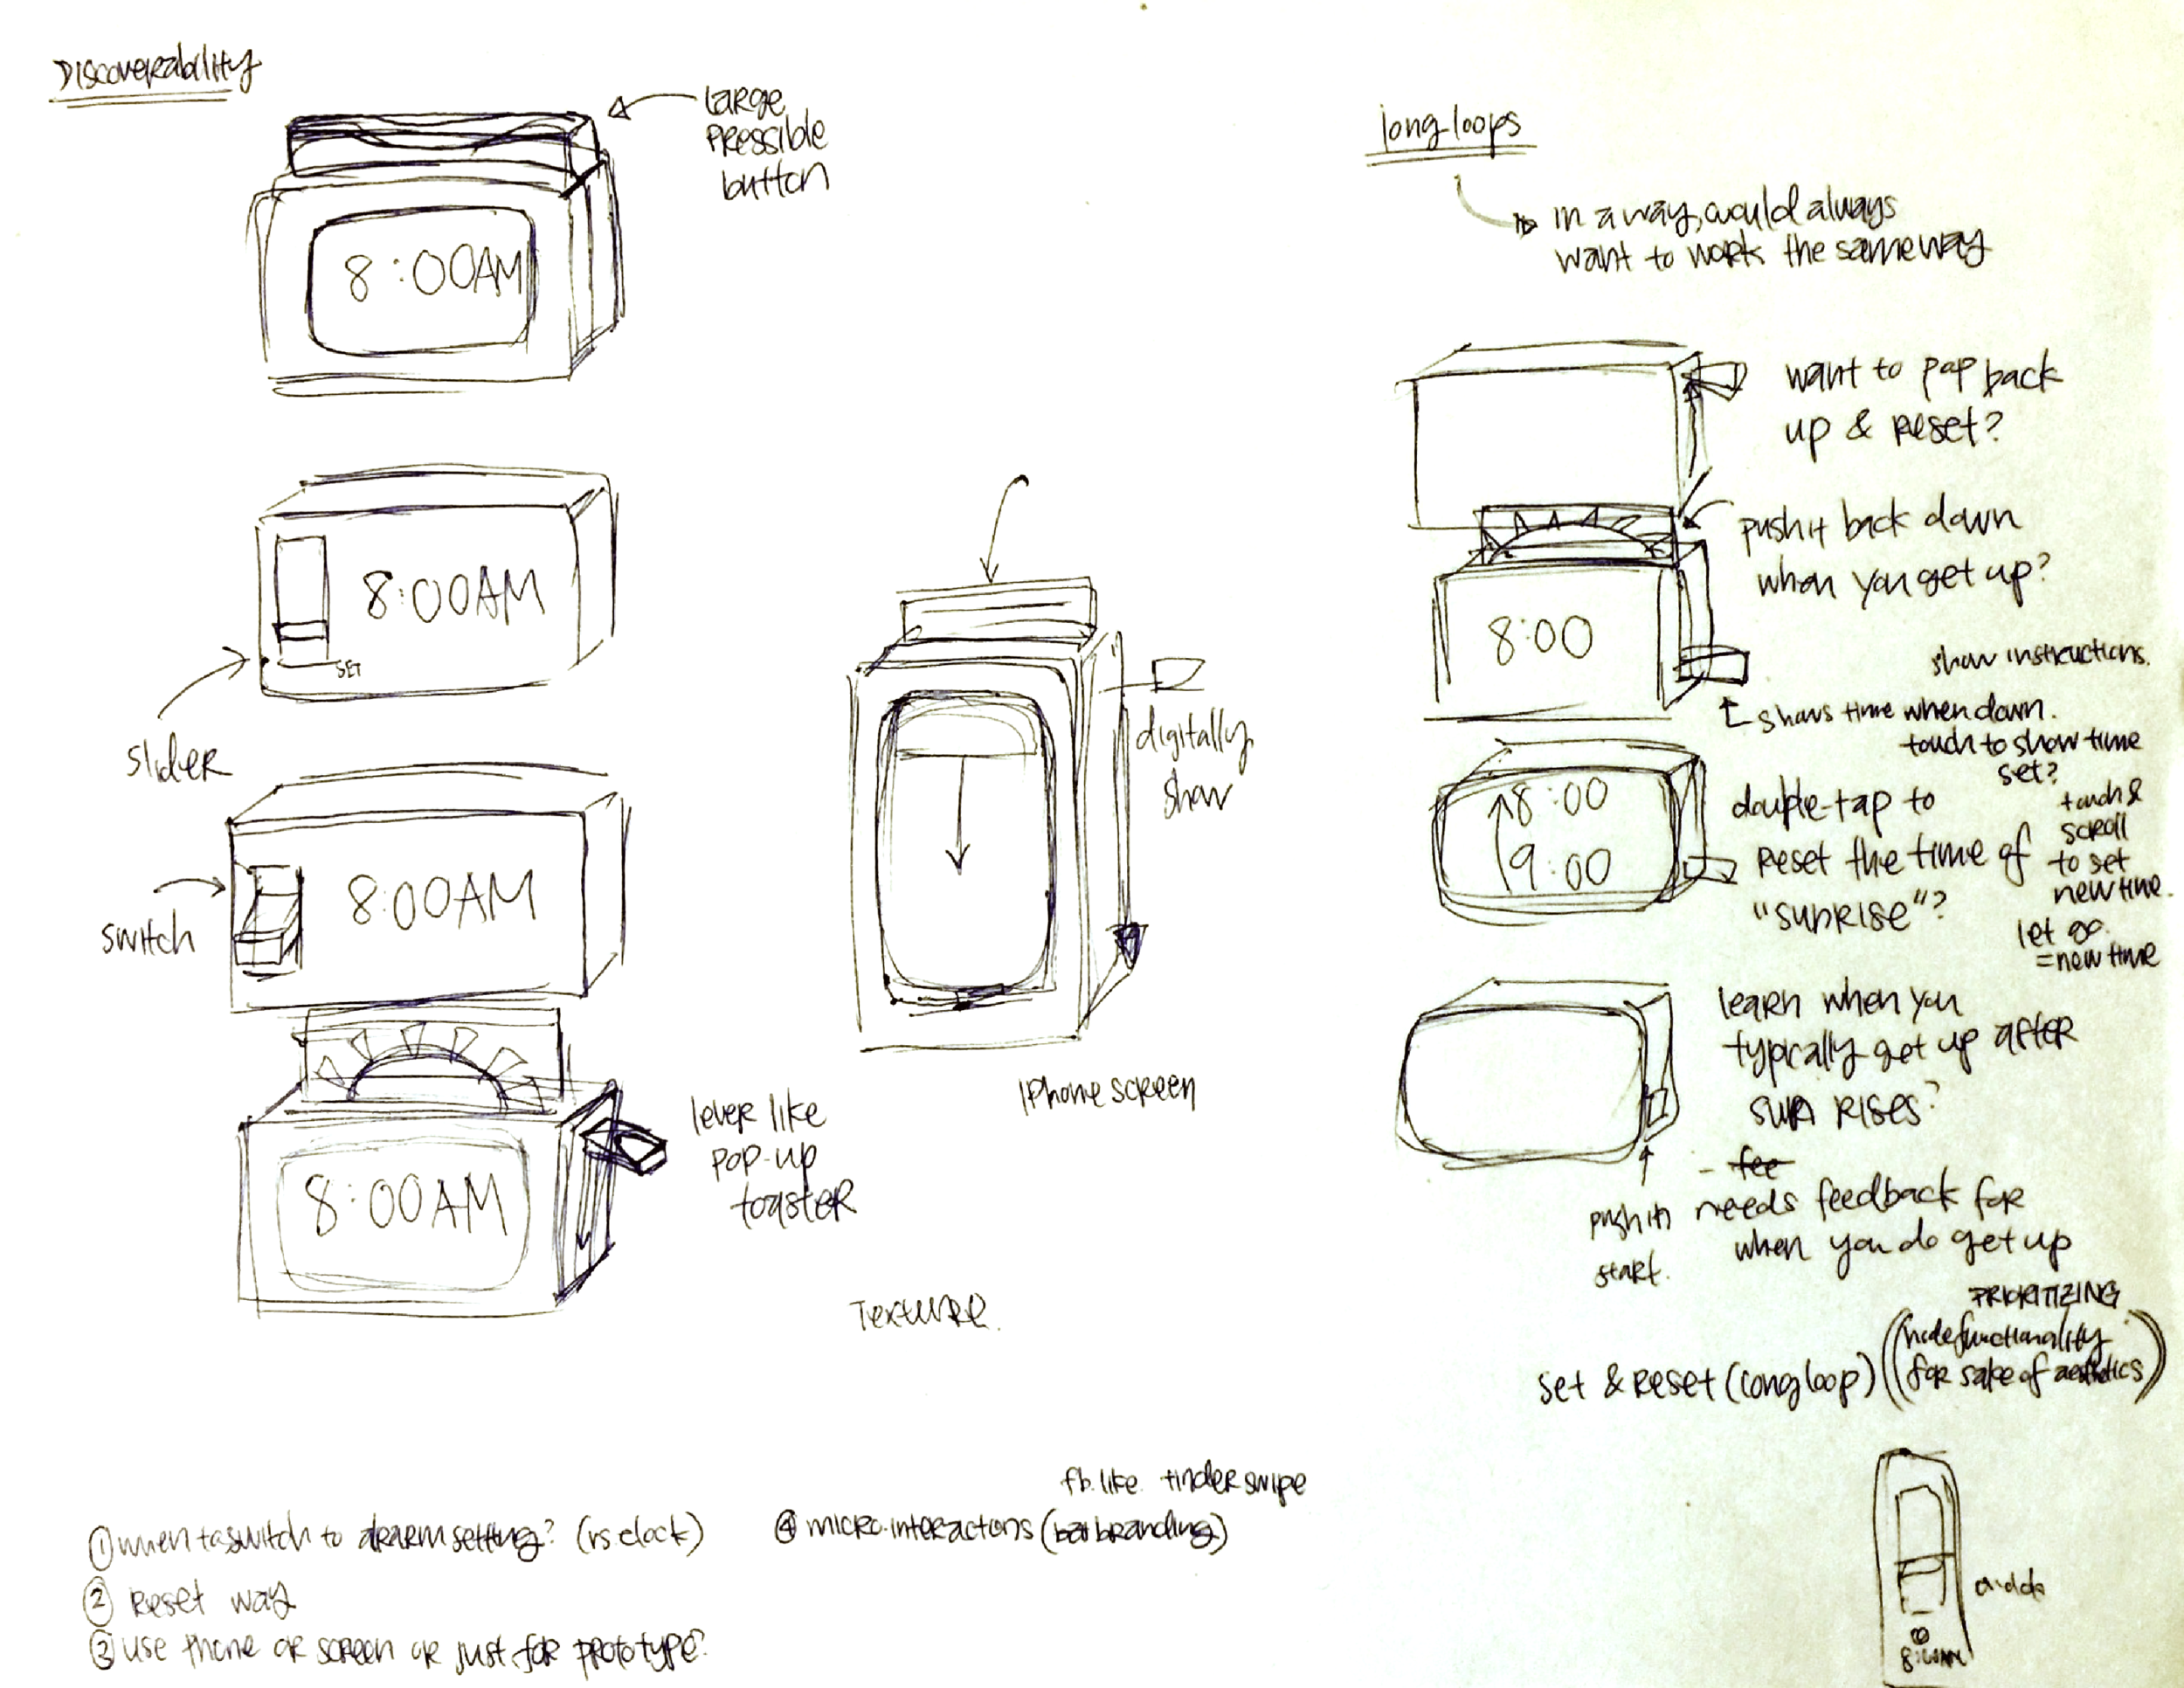 Discoverability
large
pressible
button
8:00AM
8:00AM
SET
slider
switch
8:00AM
8:00AM
lever like
pop-up
toaster
digitally
show
iPhone screen
Texture.
fb. like. tinder swipe
① when to switch to alarm setting? (vs. clock)
② Reset way
③ use phone or screen or just for prototype?
④ micro.interactons (branding)
long loops
in a way, would always
want to work the same way
want to pop back
up & reset?
push it back down
when you get up?
8:00
show instructions.
shows time when down.
touch to show time
set?
8:00
9:00
double-tap to
Reset the time of
"sunrise"?
touch &
scroll
to set
new time.
let go
= new time
learn when you
typically get up after
sun rises?
- fee
needs feedback for
when you do get up
push it
start.
PRIORITIZING
set & reset (long loop) (hide functionality
for sake of aesthetics)
8:00AM